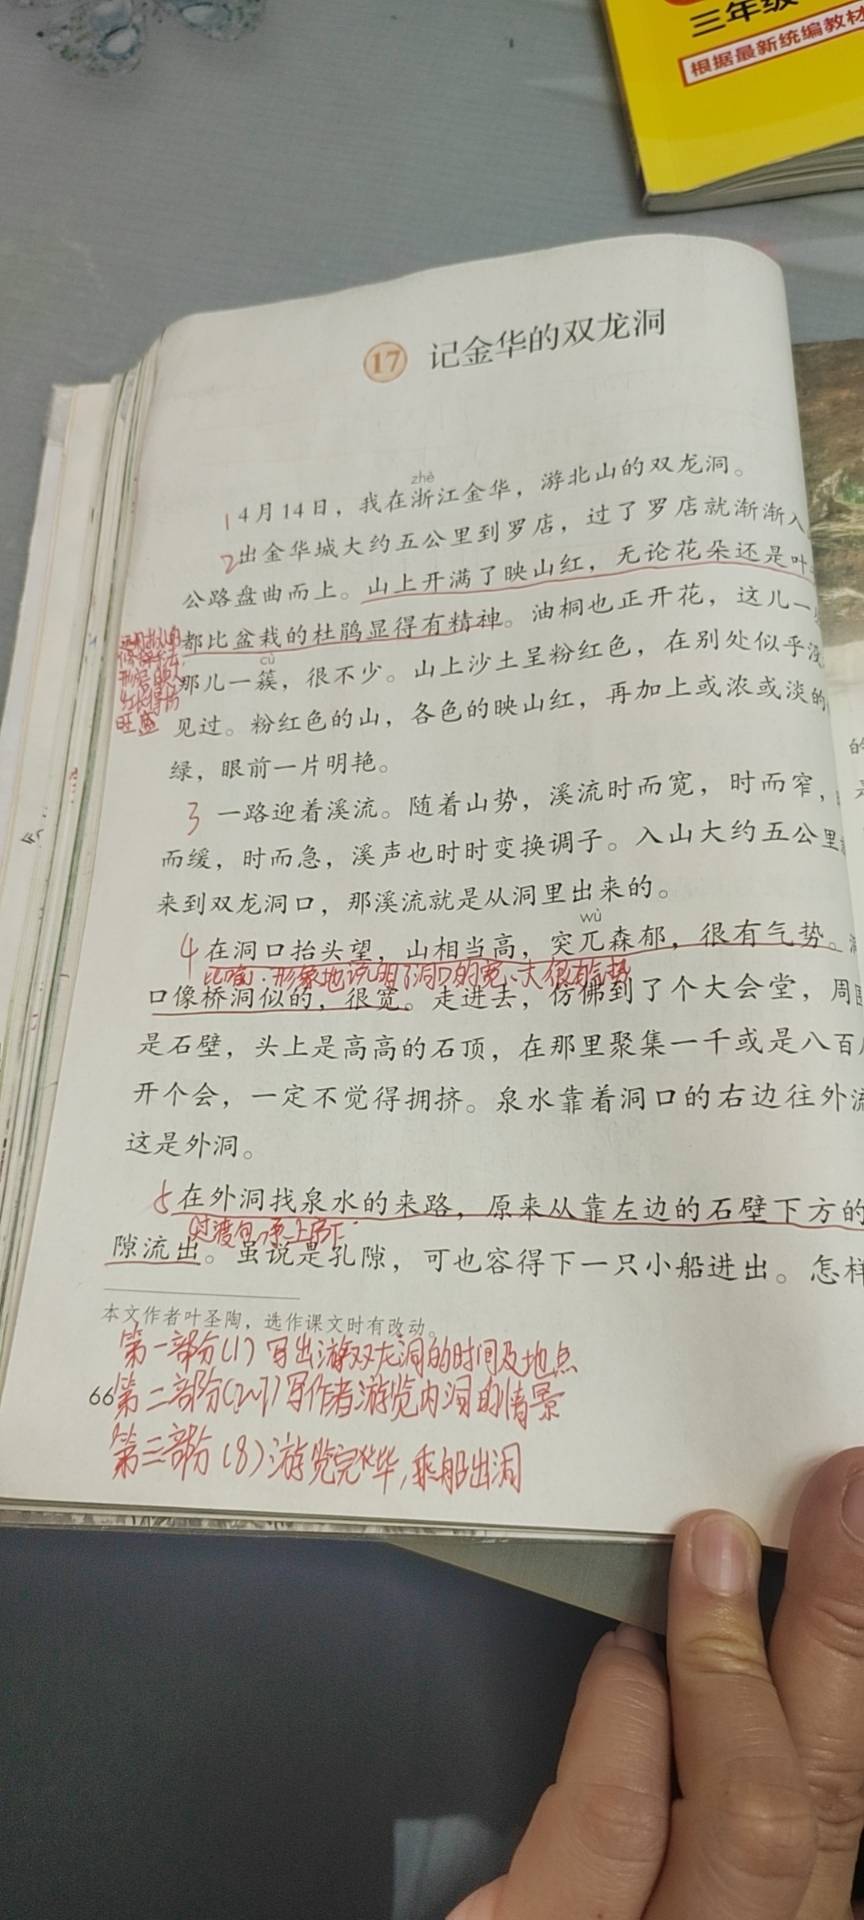 三年级
根据最新统编教材
17 记金华的双龙洞
zhè
1 4月14日，我在浙江金华，游北山的双龙洞。
2 出金华城大约五公里到罗店，过了罗店就渐渐入
公路盘曲而上。山上开满了映山红，无论花朵还是叶
都比盆栽的杜鹃显得有精神。油桐也正开花，这儿一
cù
那儿一簇，很不少。山上沙土呈粉红色，在别处似乎没
见过。粉红色的山，各色的映山红，再加上或浓或淡的
绿，眼前一片明艳。
旺盛
3 一路迎着溪流。随着山势，溪流时而宽，时而窄，
而缓，时而急，溪声也时时变换调子。入山大约五公里
来到双龙洞口，那溪流就是从洞里出来的。
wù
4 在洞口抬头望，山相当高，突兀森郁，很有气势。
比喻：形象地说明了洞口的宽、大很有气势
口像桥洞似的，很宽。走进去，仿佛到了个大会堂，周围
是石壁，头上是高高的石顶，在那里聚集一千或是八百
开个会，一定不觉得拥挤。泉水靠着洞口的右边往外流
这是外洞。
5 在外洞找泉水的来路，原来从靠左边的石壁下方的
过渡句，承上启下
隙流出。虽说是孔隙，可也容得下一只小船进出。怎样
本文作者叶圣陶，选作课文时有改动。
第一部分(1)写出游双龙洞的时间及地点
66 第二部分(2~7)写作者游览内洞的情景
第三部分(8)游览完毕，乘船出洞
的